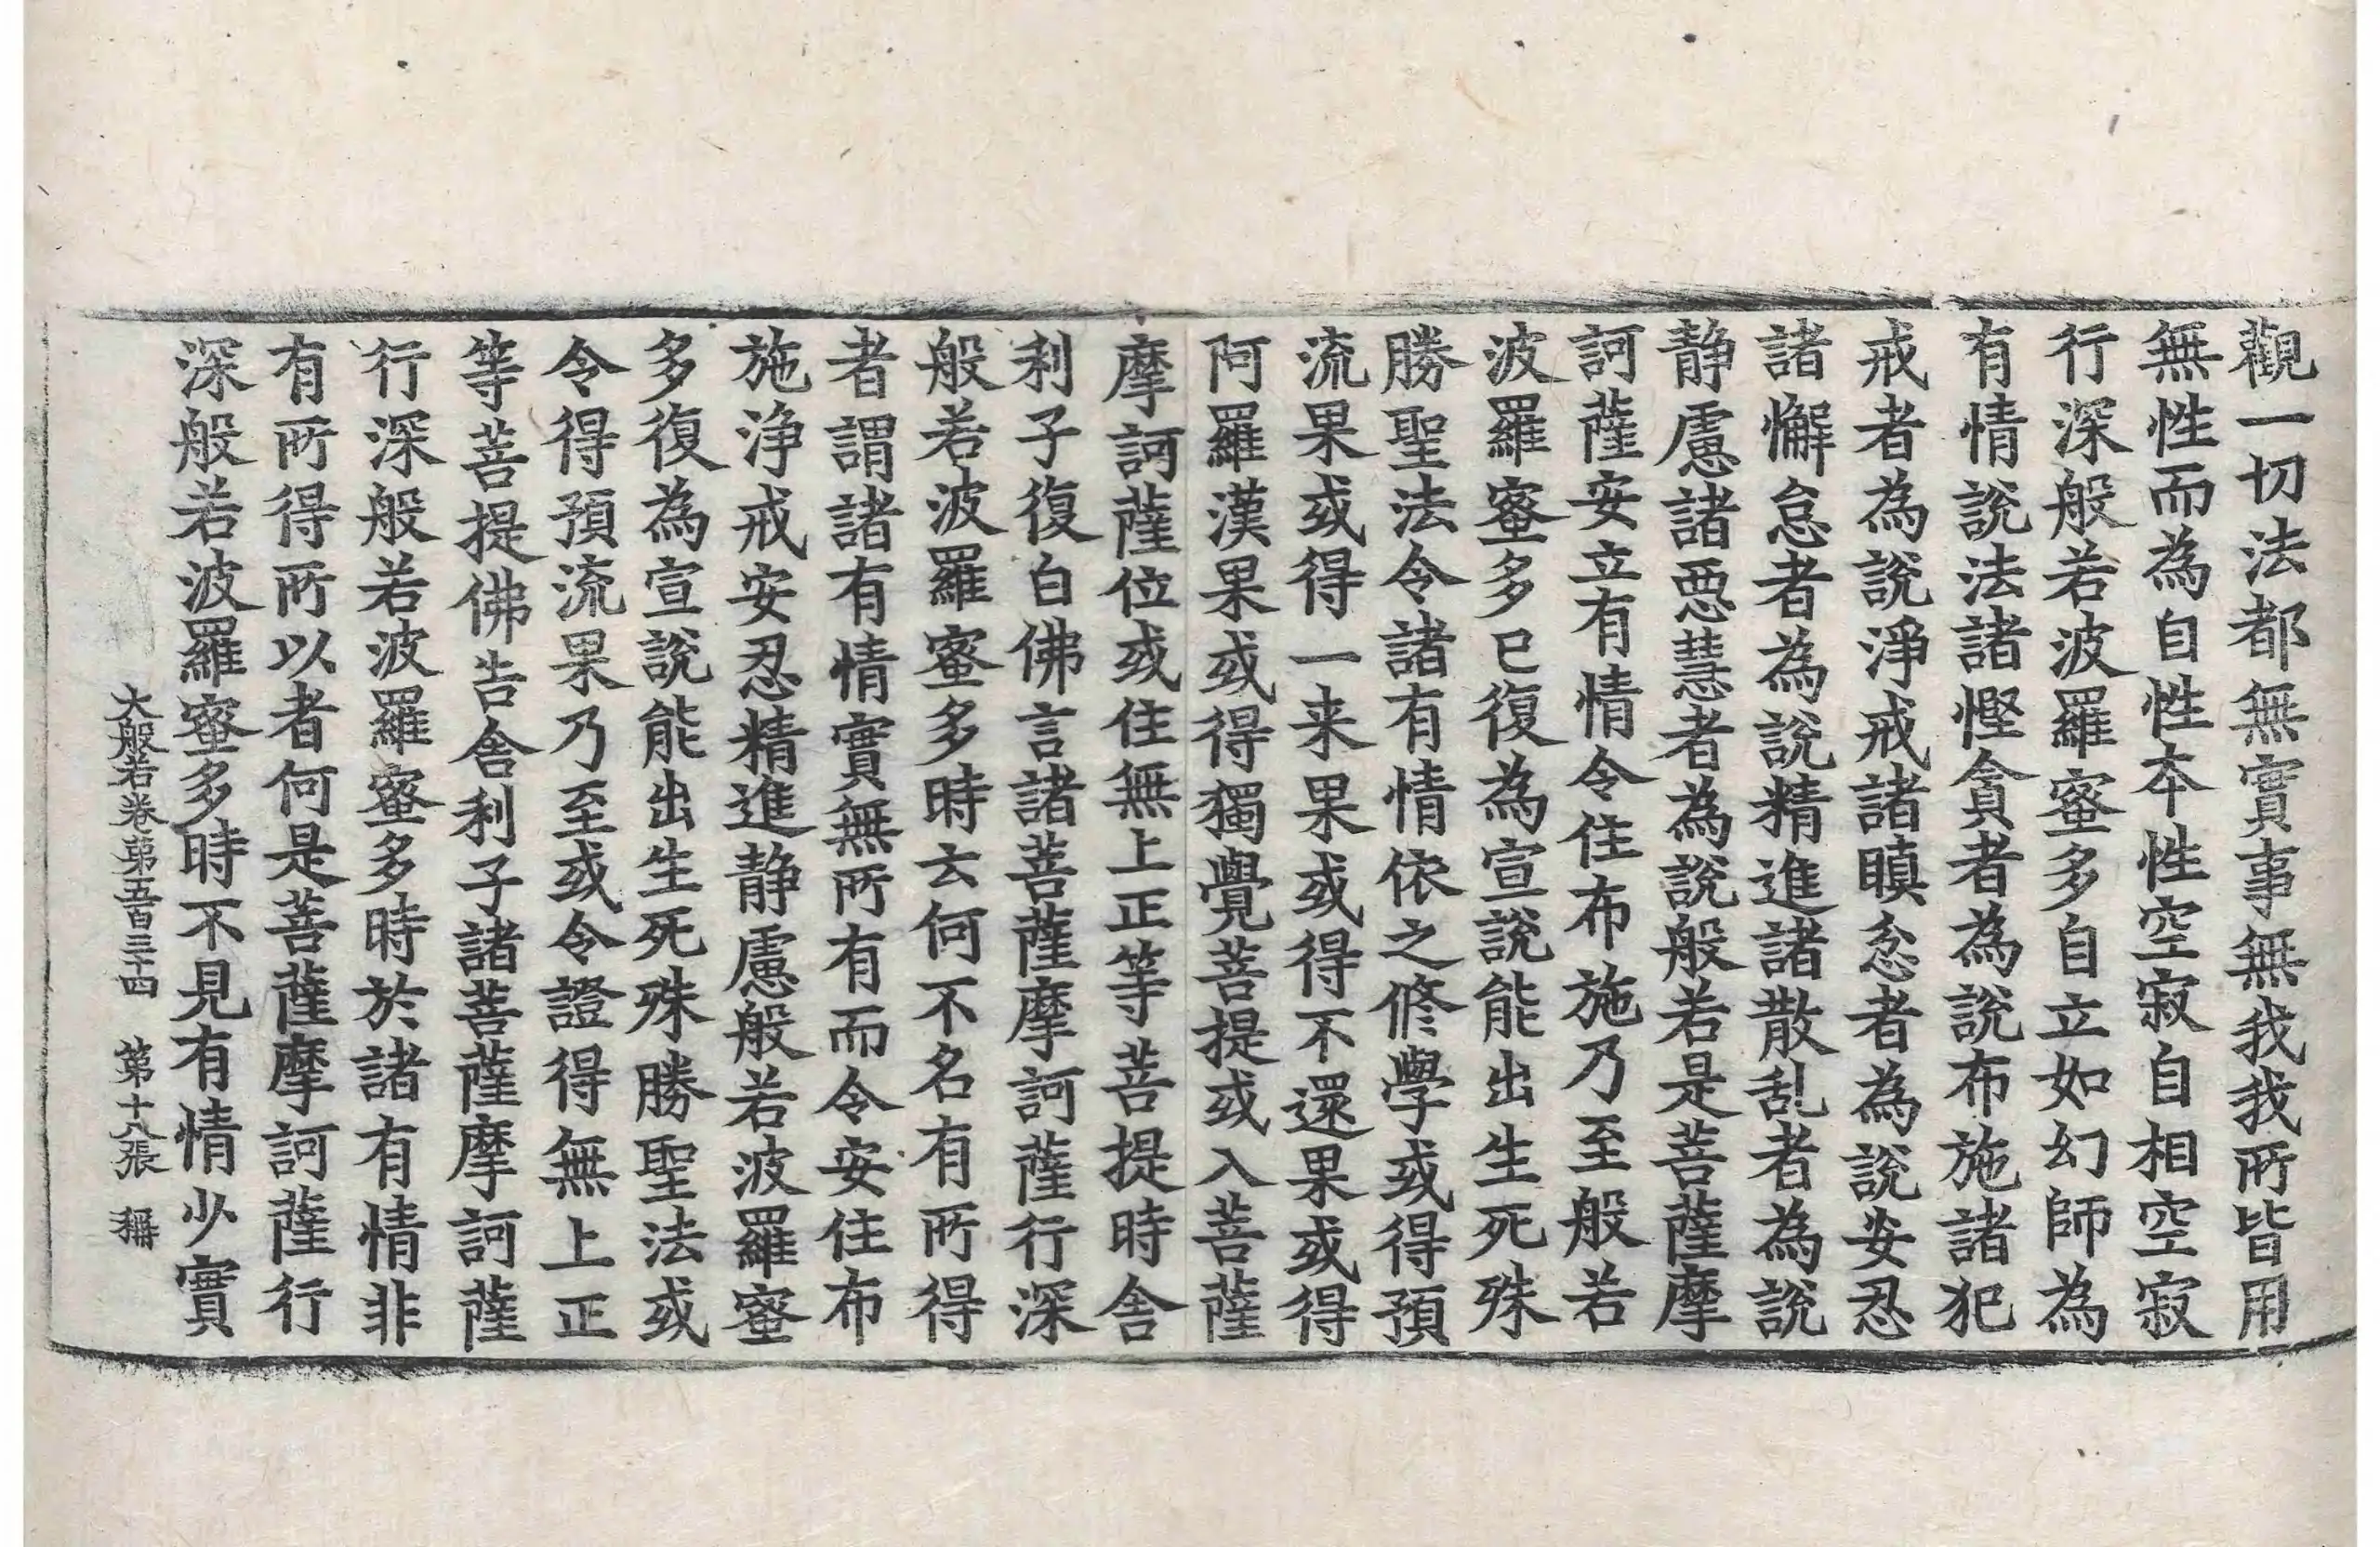 觀一切法都無實事無我我所皆用
無性而為自性本性空寂自相空寂
行深般若波羅蜜多自立如幻師為
有情說法諸慳貪者為說布施諸犯
戒者為說淨戒諸瞋忿者為說安忍
諸懈怠者為說精進諸散乱者為說
静慮諸惡慧者為說般若是菩薩摩
訶薩安立有情令住布施乃至般若
波羅蜜多已復為宣說能出生死殊
勝聖法令諸有情依之修學或得預
流果或得一来果或得不還果或得
阿羅漢果或得獨覺菩提或入菩薩
摩訶薩位或住無上正等菩提時舍
利子復白佛言諸菩薩摩訶薩行深
般若波羅蜜多時云何不名有所得
者謂諸有情實無所有而令安住布
施净戒安忍精進静慮般若波羅蜜
多復為宣說能出生死殊勝聖法或
令得預流果乃至或令證得無上正
等菩提佛告舍利子諸菩薩摩訶薩
行深般若波羅蜜多時於諸有情非
有所得所以者何是菩薩摩訶薩行
深般若波羅蜜多時不見有情少實
大般若卷第五百三十四 第十八張